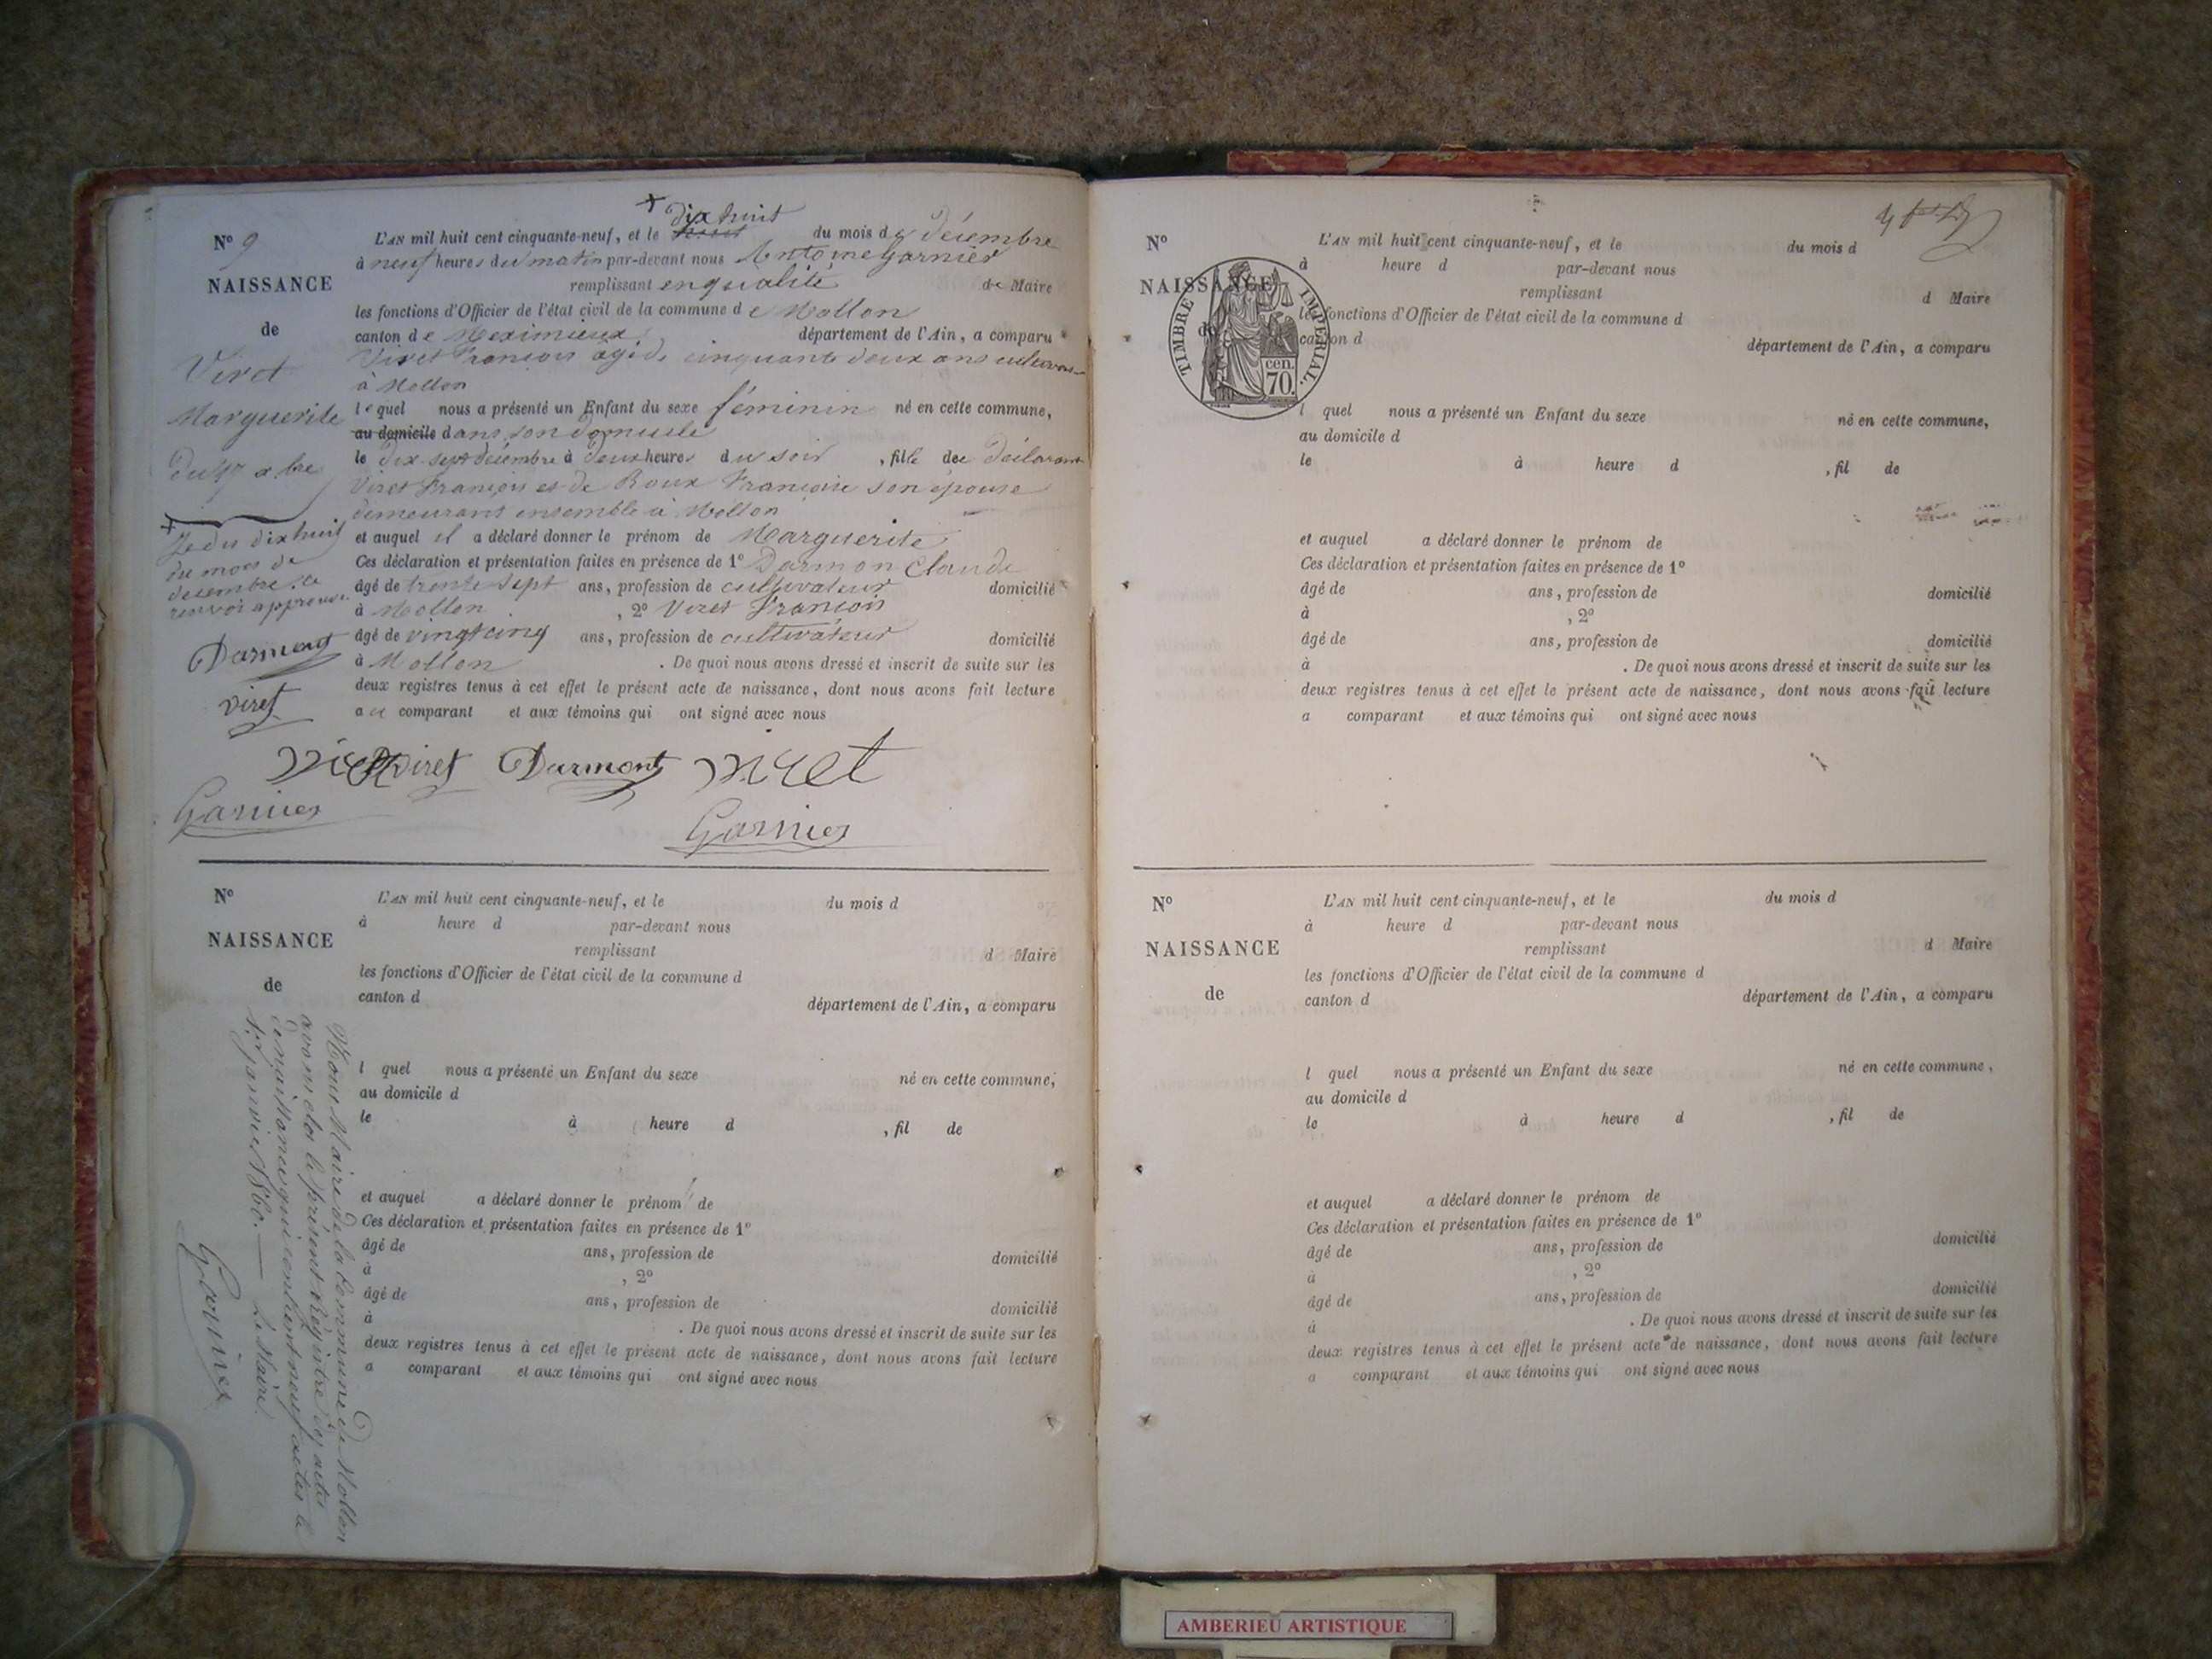 N° 9
NAISSANCE
de
Viret
Marguerite
du 17 xbre
L'AN mil huit cent cinquante-neuf, et le dix huit du mois de décembre
à neuf heures du matin par-devant nous Antoine Garnier
remplissant en qualité de Maire
les fonctions d'Officier de l'état civil de la commune de Mollon
canton de Meximieux département de l'Ain, a comparu
Viret François agé de cinquante deux ans
à Mollon
lequel nous a présenté un Enfant du sexe féminin né en cette commune,
au domicile dans son domicile
le dix sept décembre à deux heures du soir, fille de déclarant
Viret François et de Roux Françoise son épouse
demeurant ensemble à Mollon
et auquel il a déclaré donner le prénom de Marguerite
Ces déclaration et présentation faites en présence de 1° Darmon Claude
âgé de trente sept ans, profession de cultivateur domicilié
à Mollon, 2° Viret François
âgé de vingt cinq ans, profession de cultivateur domicilié
à Mollon. De quoi nous avons dressé et inscrit de suite sur les
deux registres tenus à cet effet le présent acte de naissance, dont nous avons fait lecture
au comparant et aux témoins qui ont signé avec nous
dix huit
du mois de
desembre
renvoi approuvé
Darmont
viret
viret Darmont Viret
Garnier
Garnier
N°
NAISSANCE
de
L'AN mil huit cent cinquante-neuf, et le du mois d
à heure d par-devant nous
remplissant d Maire
les fonctions d'Officier de l'état civil de la commune d
canton d département de l'Ain, a comparu
l quel nous a présenté un Enfant du sexe né en cette commune,
au domicile d
le à heure d , fil de
et auquel a déclaré donner le prénom de
Ces déclaration et présentation faites en présence de 1°
âgé de ans, profession de domicilié
à , 2°
âgé de ans, profession de domicilié
à . De quoi nous avons dressé et inscrit de suite sur les
deux registres tenus à cet effet le présent acte de naissance, dont nous avons fait lecture
a comparant et aux témoins qui ont signé avec nous
Nous Maire de la Commune de Mollon
avons clos le présent Registre des actes
de naissances qui contient neuf actes le
1er janvier 1860. — Le Maire
Garnier
N°
NAISSANCE
de
TIMBRE IMPERIAL.
70 cen.
L'AN mil huit cent cinquante-neuf, et le du mois d
à heure d par-devant nous
remplissant d Maire
les fonctions d'Officier de l'état civil de la commune d
canton d département de l'Ain, a comparu
l quel nous a présenté un Enfant du sexe né en cette commune,
au domicile d
le à heure d , fil de
et auquel a déclaré donner le prénom de
Ces déclaration et présentation faites en présence de 1°
âgé de ans, profession de domicilié
à , 2°
âgé de ans, profession de domicilié
à . De quoi nous avons dressé et inscrit de suite sur les
deux registres tenus à cet effet le présent acte de naissance, dont nous avons fait lecture
a comparant et aux témoins qui ont signé avec nous
N°
NAISSANCE
de
L'AN mil huit cent cinquante-neuf, et le du mois d
à heure d par-devant nous
remplissant d Maire
les fonctions d'Officier de l'état civil de la commune d
canton d département de l'Ain, a comparu
l quel nous a présenté un Enfant du sexe né en cette commune,
au domicile d
le à heure d , fil de
et auquel a déclaré donner le prénom de
Ces déclaration et présentation faites en présence de 1°
âgé de ans, profession de domicilié
à , 2°
âgé de ans, profession de domicilié
à . De quoi nous avons dressé et inscrit de suite sur les
deux registres tenus à cet effet le présent acte de naissance, dont nous avons fait lecture
a comparant et aux témoins qui ont signé avec nous
AMBERIEU ARTISTIQUE